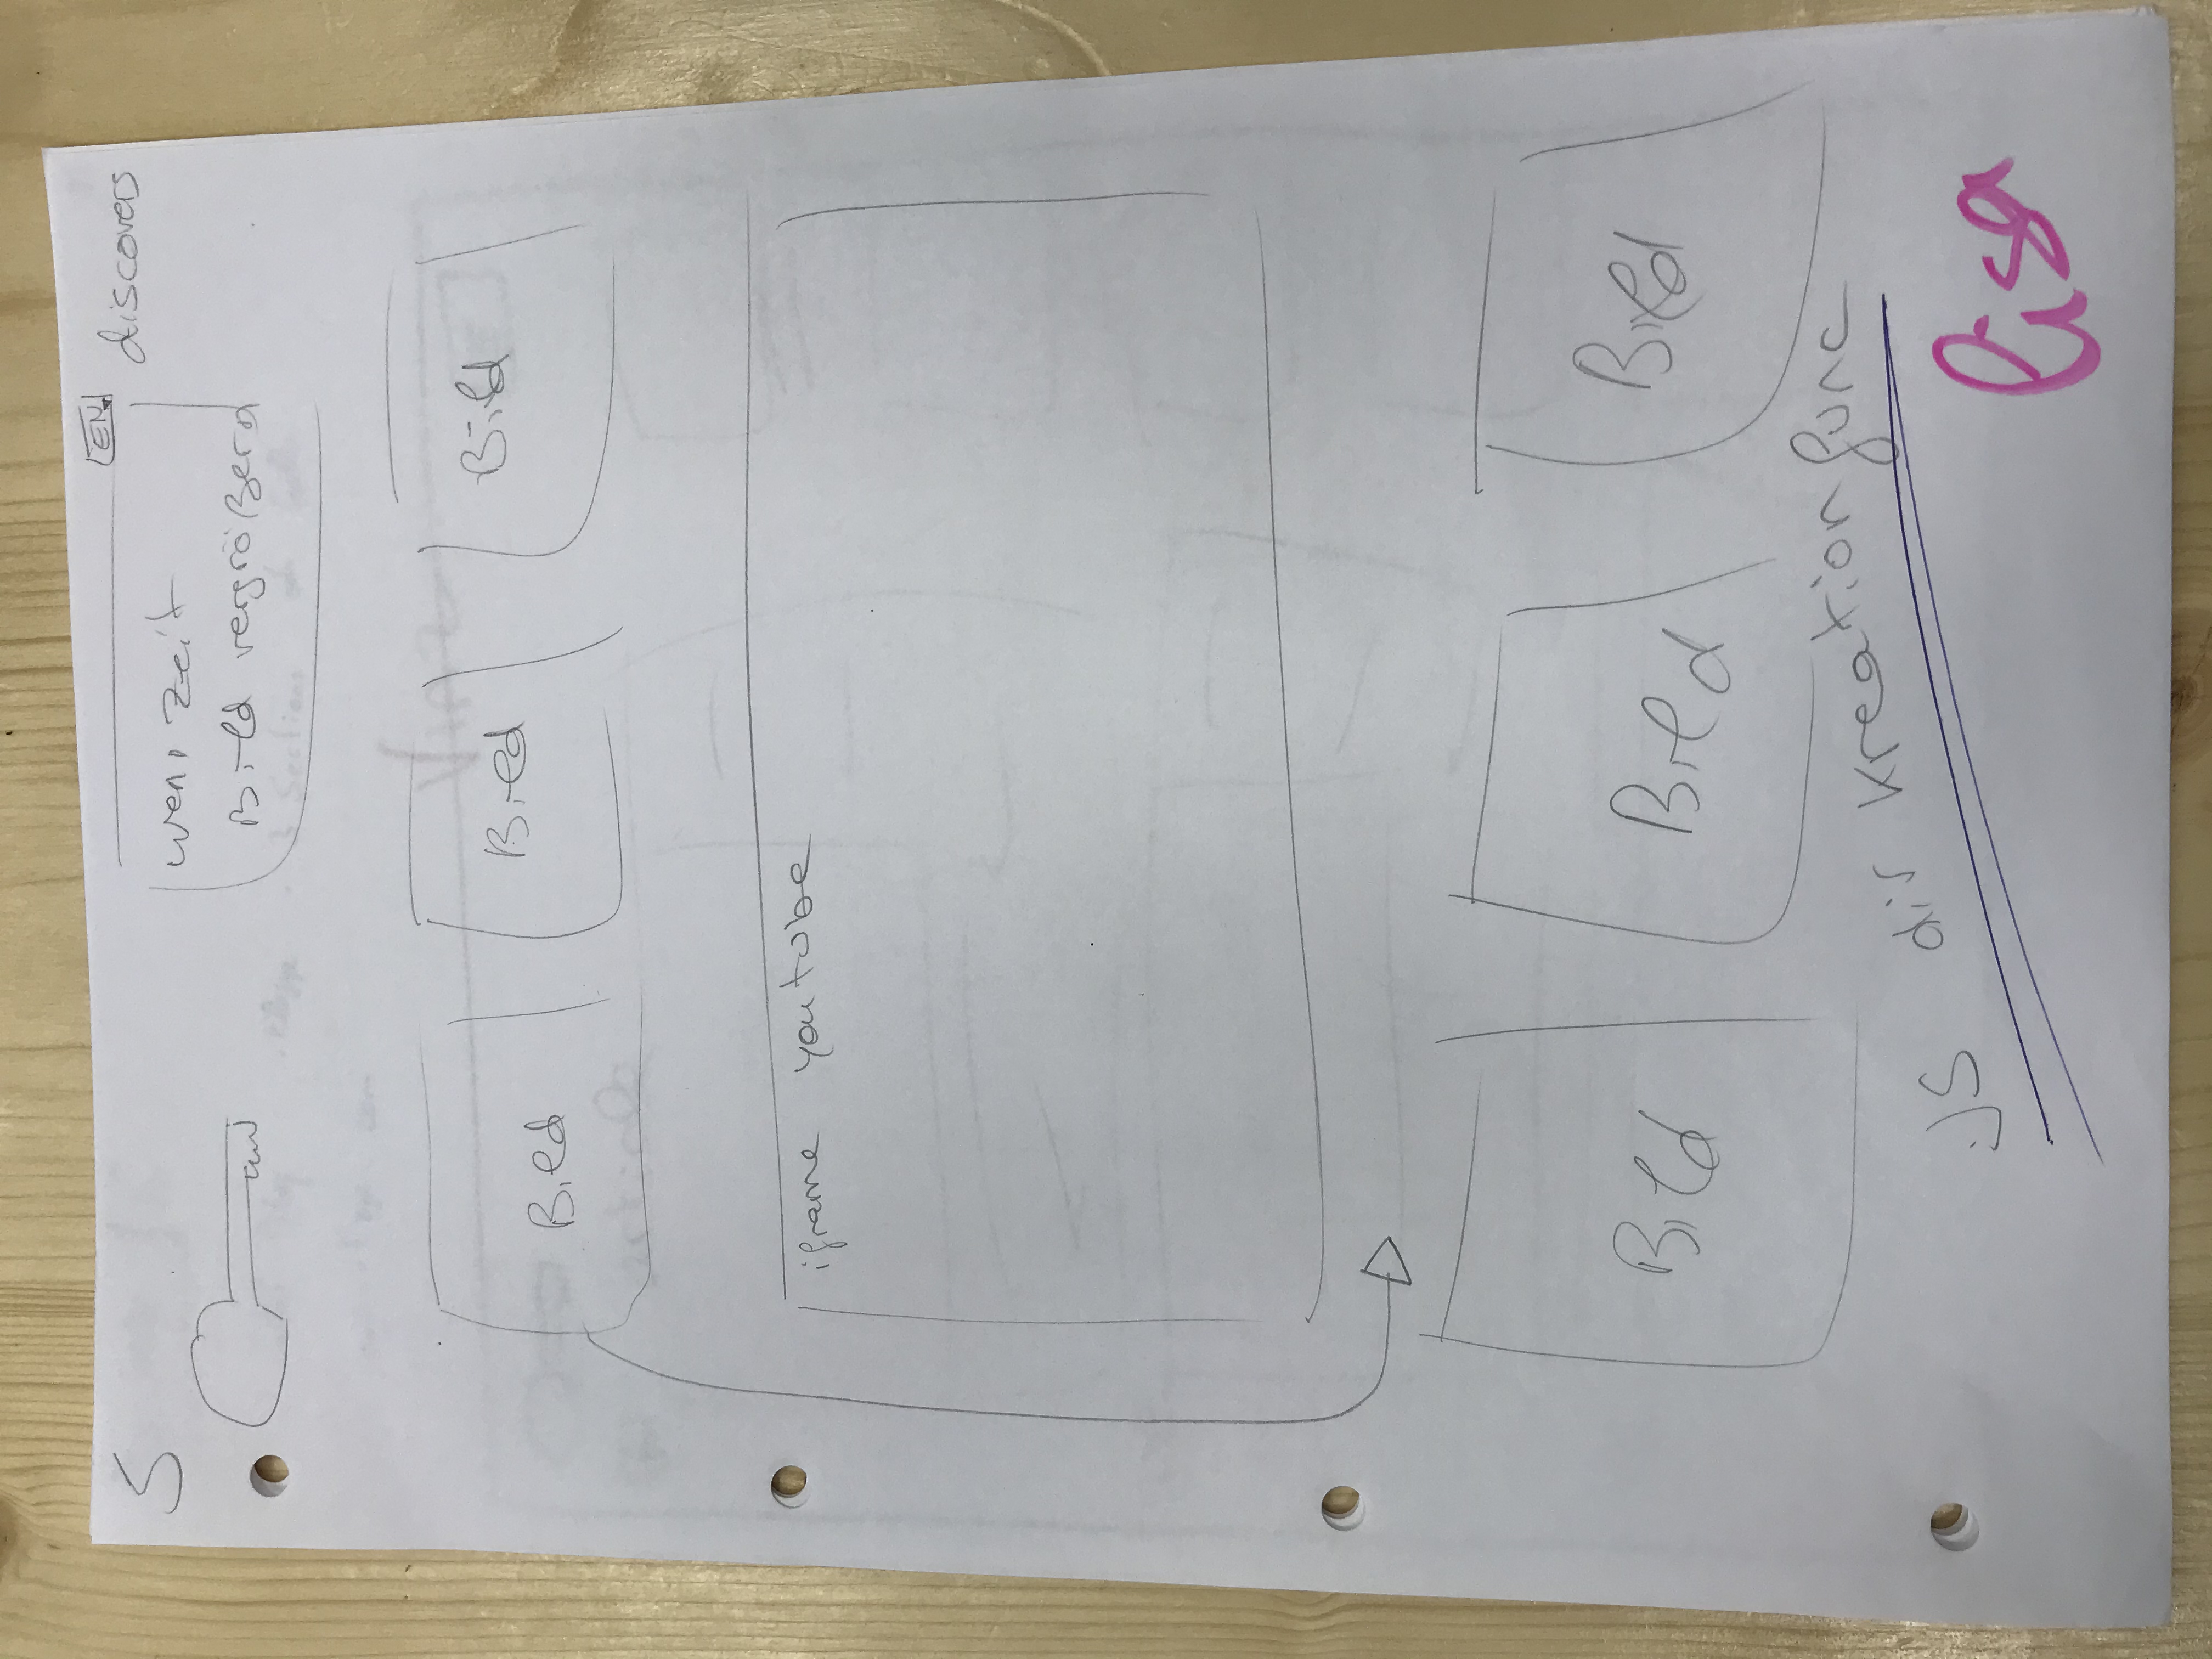 5
EN
discovers
wenn zeit
Bild vergrößern
Bild
Bild
Bild
iframe youtube
Bild
Bild
Bild
JS dir kreation func
lisa